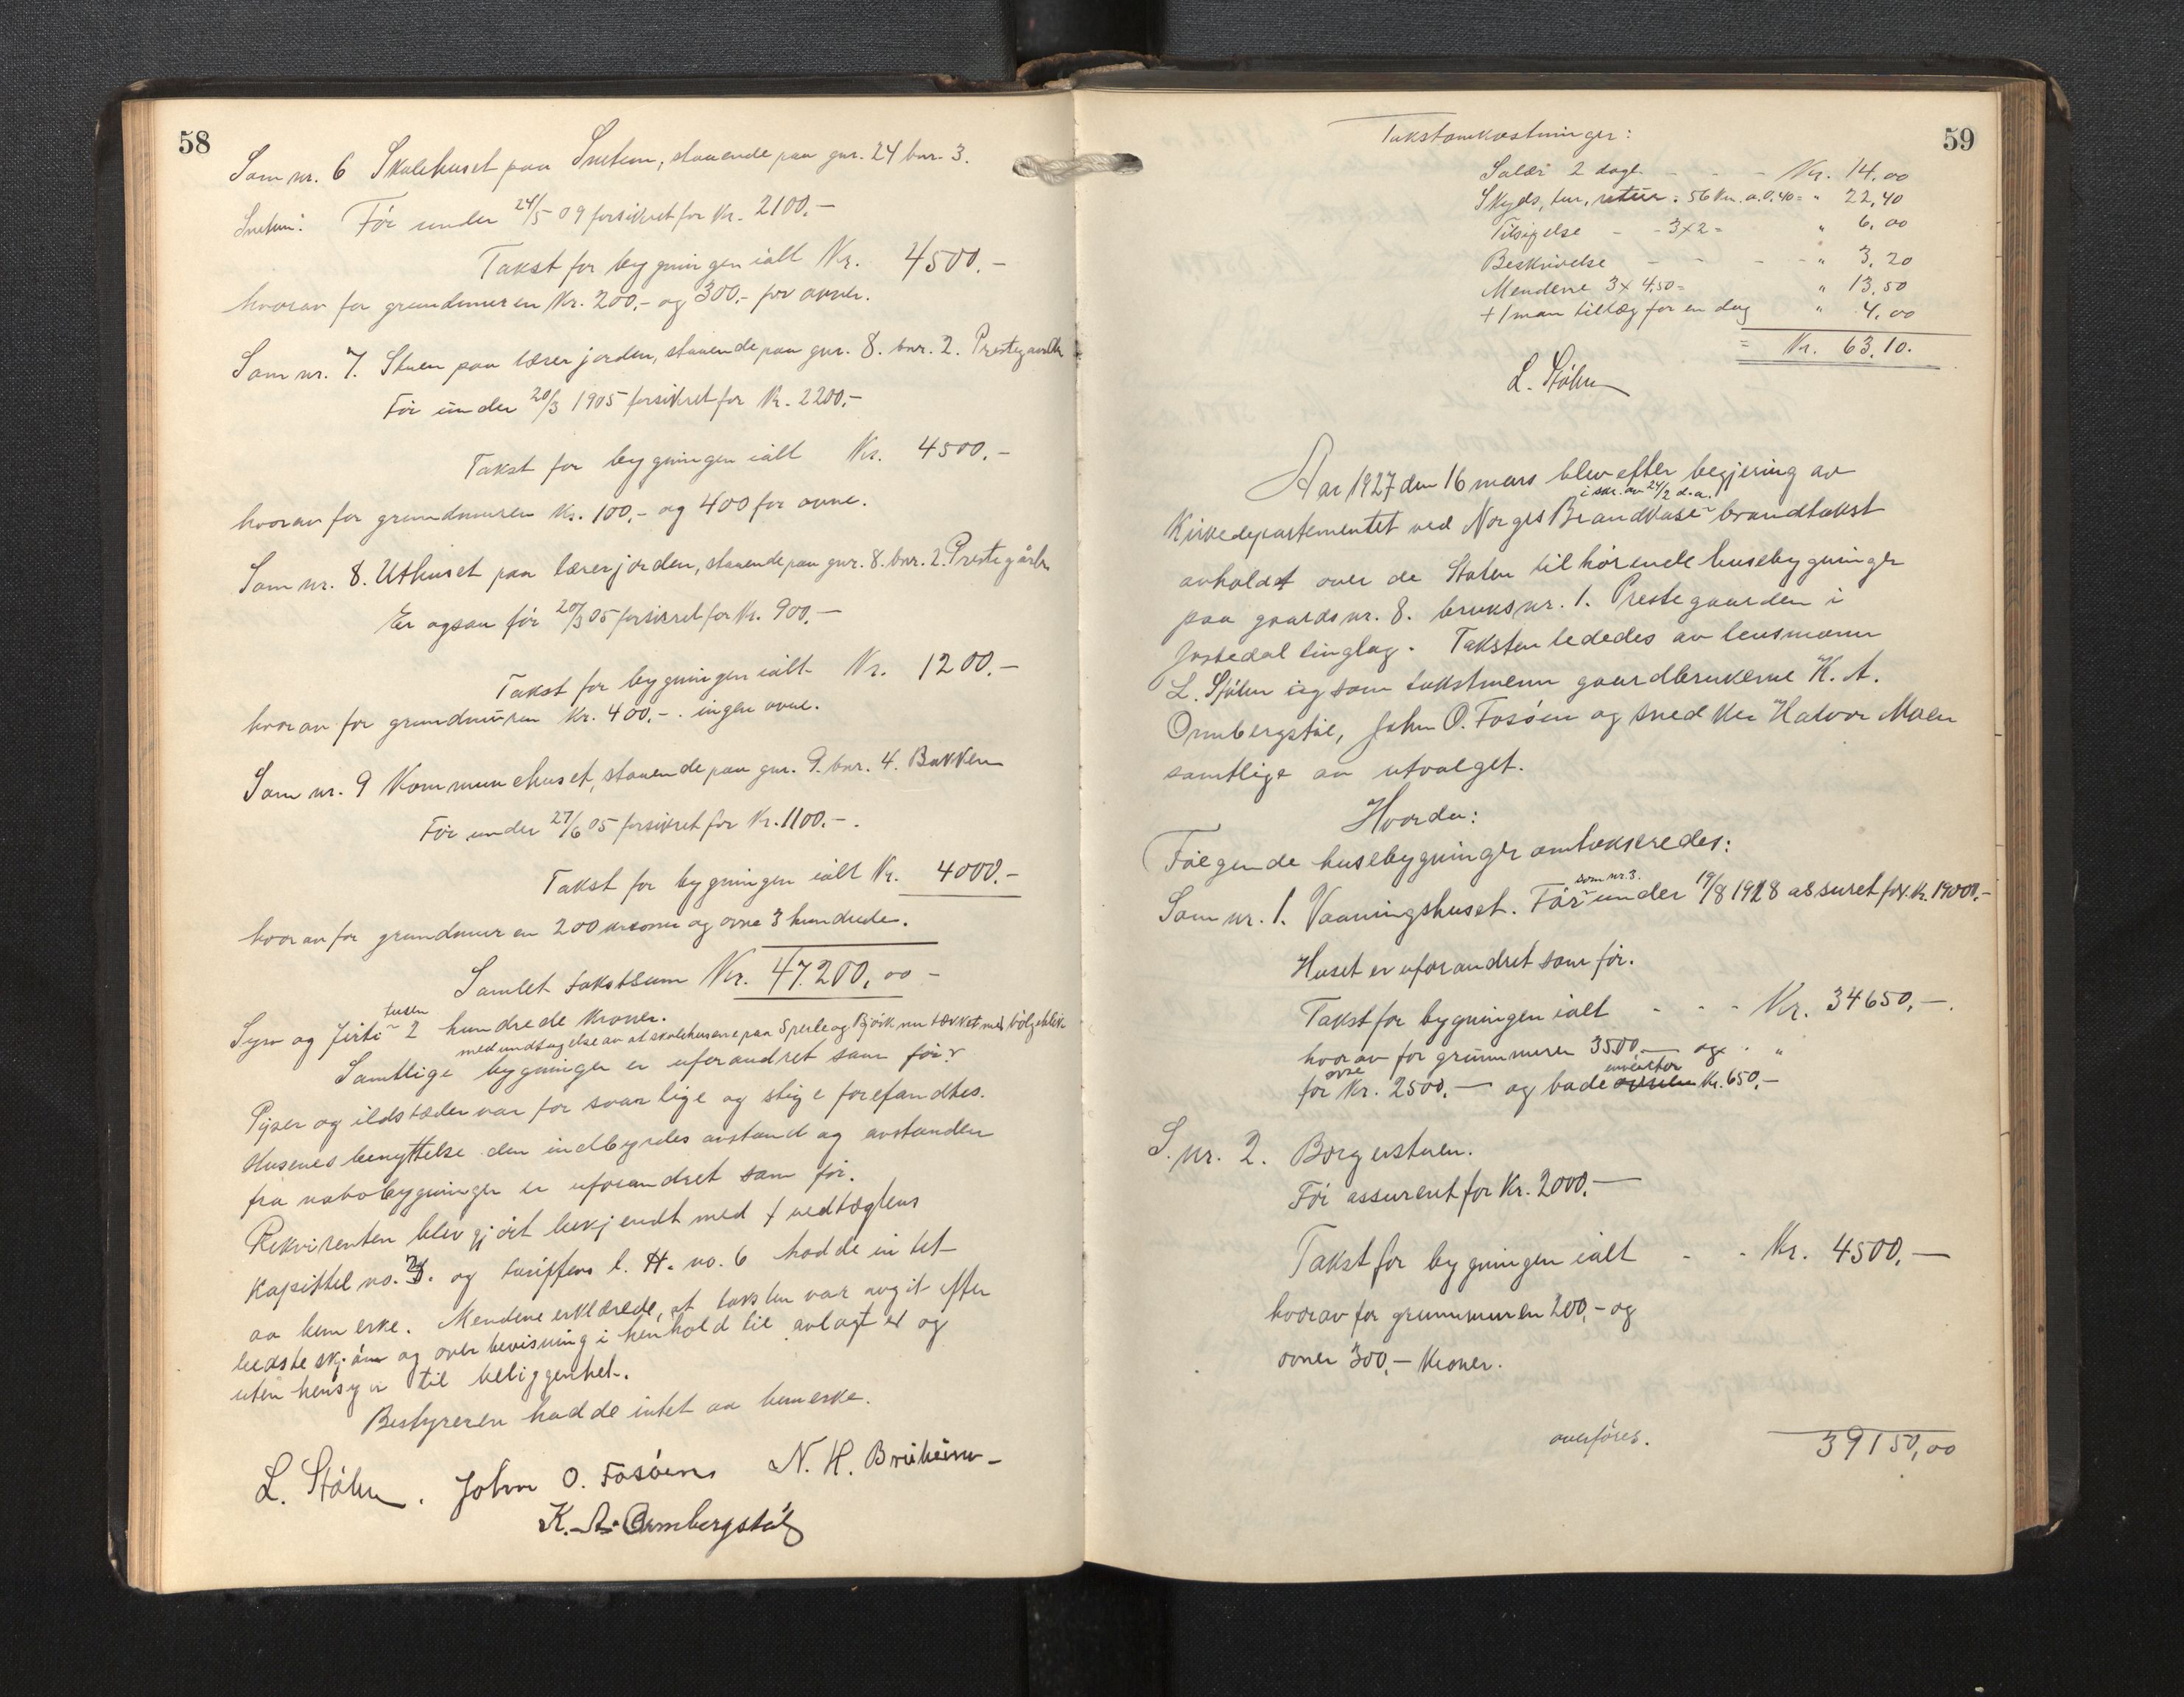 58
Som nr. 6 Skolehuset paa Snetun, staaende paa gnr. 24 bnr. 3.
Snetun. Før under 24/5 09 forsikret for Kr. 2100.-
Takst for bygningen ialt Kr. 4500.-
hvorav for grundmuren Kr. 200,- og 300,- for ovner.
Som nr. 7. Stuen paa lærerjorden, staaende paa gnr. 8. bnr. 2. Prestegaarden
Før under 20/3 1905 forsikret for Kr. 2200.-
Takst for bygningen ialt Kr. 4500.-
hvorav for grundmuren Kr. 100,- og 400 for ovne.
Som nr. 8. Uthuset paa lærerjorden, staaende paa gnr. 8. bnr. 2. Prestegårdn
Er ogsaa før 20/3 05 forsikret for Kr. 900.-
Takst for bygningen ialt Kr. 1200.-
hvorav for grundmuren Kr. 400,-. ingen ovne.
Som nr. 9 Kommunehuset, staaende paa gnr. 9. bnr. 4. Bakken
Før under 27/6 05 forsikret for Kr. 1100.-.
Takst for bygningen ialt Kr. 4000.-
hvorav for grundmuren 200 kroner og ovne 3 hundrede.
Samlet takstsum Kr. 47.200,00 -
Syv og førti tusen 2 hundrede kroner.
med undtagelse av at skolehusene paa Sperle og Bjørk nu tækket med bølgeblik
Samtlige bygninger er uforandret som før
Piper og ildsteder var forsvarlige og stige forefandtes.
Husenes benyttelse den indbyrdes avstand og avstanden
fra nabobygninger er uforandret som før.
Rekvirenten blev gjort bekjendt med vedtægtens
Kapittel no. 2. og tariffens l. H. no. 6 hadde intet
aa bemerke. Mendene erklærede, at taksten var avgit efter
bedste skjøn og overbevisning i henhold til avlagt ed og
uten hensyn til beliggenhet.
Bestyreren hadde intet aa bemerke.
L. Støhn. John O. Fosøen N. H. Briheim
K. A. Ormbergstøl
59
Takstomkostninger:
Salær 2 dage - - - Kr. 14,00
Skyds, tur, retur. 56 km. a. 0,40 = " 22,40
Tilsigelse - - 3x2 = " 6,00
Beskrivelse - - - " 3,20
Mendene 3 x 4.50 = " 13,50
+ 1 man tillæg for en dag " 4,00
= Kr. 63,10.
L. Støhn
Aar 1927 den 16 mars blev efter begjering av
i skr. av 24/2 d.a.
Kirkedepartementet ved Norges Brandkasse brandtakst
avholdt over de Staten tilhørende husebygninger
paa gaardsnr. 8. bruksnr. 1. Prestegaarden i
Jostedal tinglag. Taksten lededes av lensmann
L. Støhn og som takstmenn gaardbrukerne K. A.
Ormbergstøl, John O. Fosøen og snedker Halvor Moen
samtlige av utvalget.
Hvorda:
Følgende husebygninger omtakseredes:
som nr. 3.
Som nr. 1. Vaaningshuset. Før under 19/8 1918 assuret for kr. 19000.-
Huset er uforandret som før.
Takst for bygningen ialt - - - Kr. 34650,-.
hvorav for grunmuren 3500.- og. "
ovne inventar
for Kr. 2500.- og bade Kr. 650,-
S. nr. 2. Borgerstuen.
Før assurert for Kr. 2000.-
Takst for bygningen ialt - - Kr. 4500.-
hvorav for grunmuren 200,- og
ovner 300,- Kroner.
overføres. 39150,00